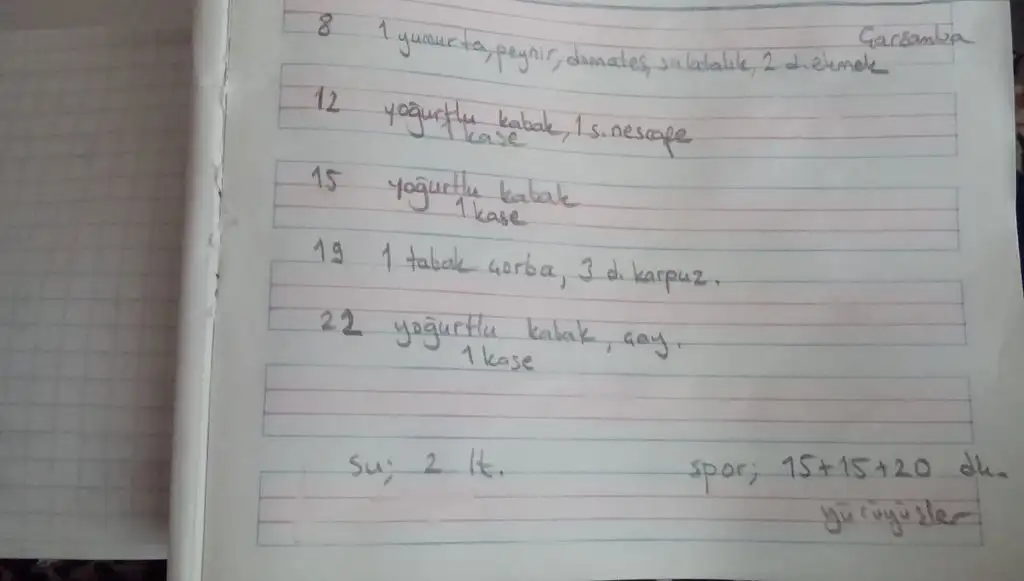 Çarşamba
8 1 yumurta, peynir, domates, salatalık, 2 d. ekmek
12 yoğurtlu kabak, 1 s. nescafe
1 kase
15 yoğurtlu kabak
1 kase
19 1 tabak çorba, 3 d. karpuz.
22 yoğurtlu kabak, çay.
1 kase
su; 2 lt. spor; 15+15+20 dk.
yürüyüşler